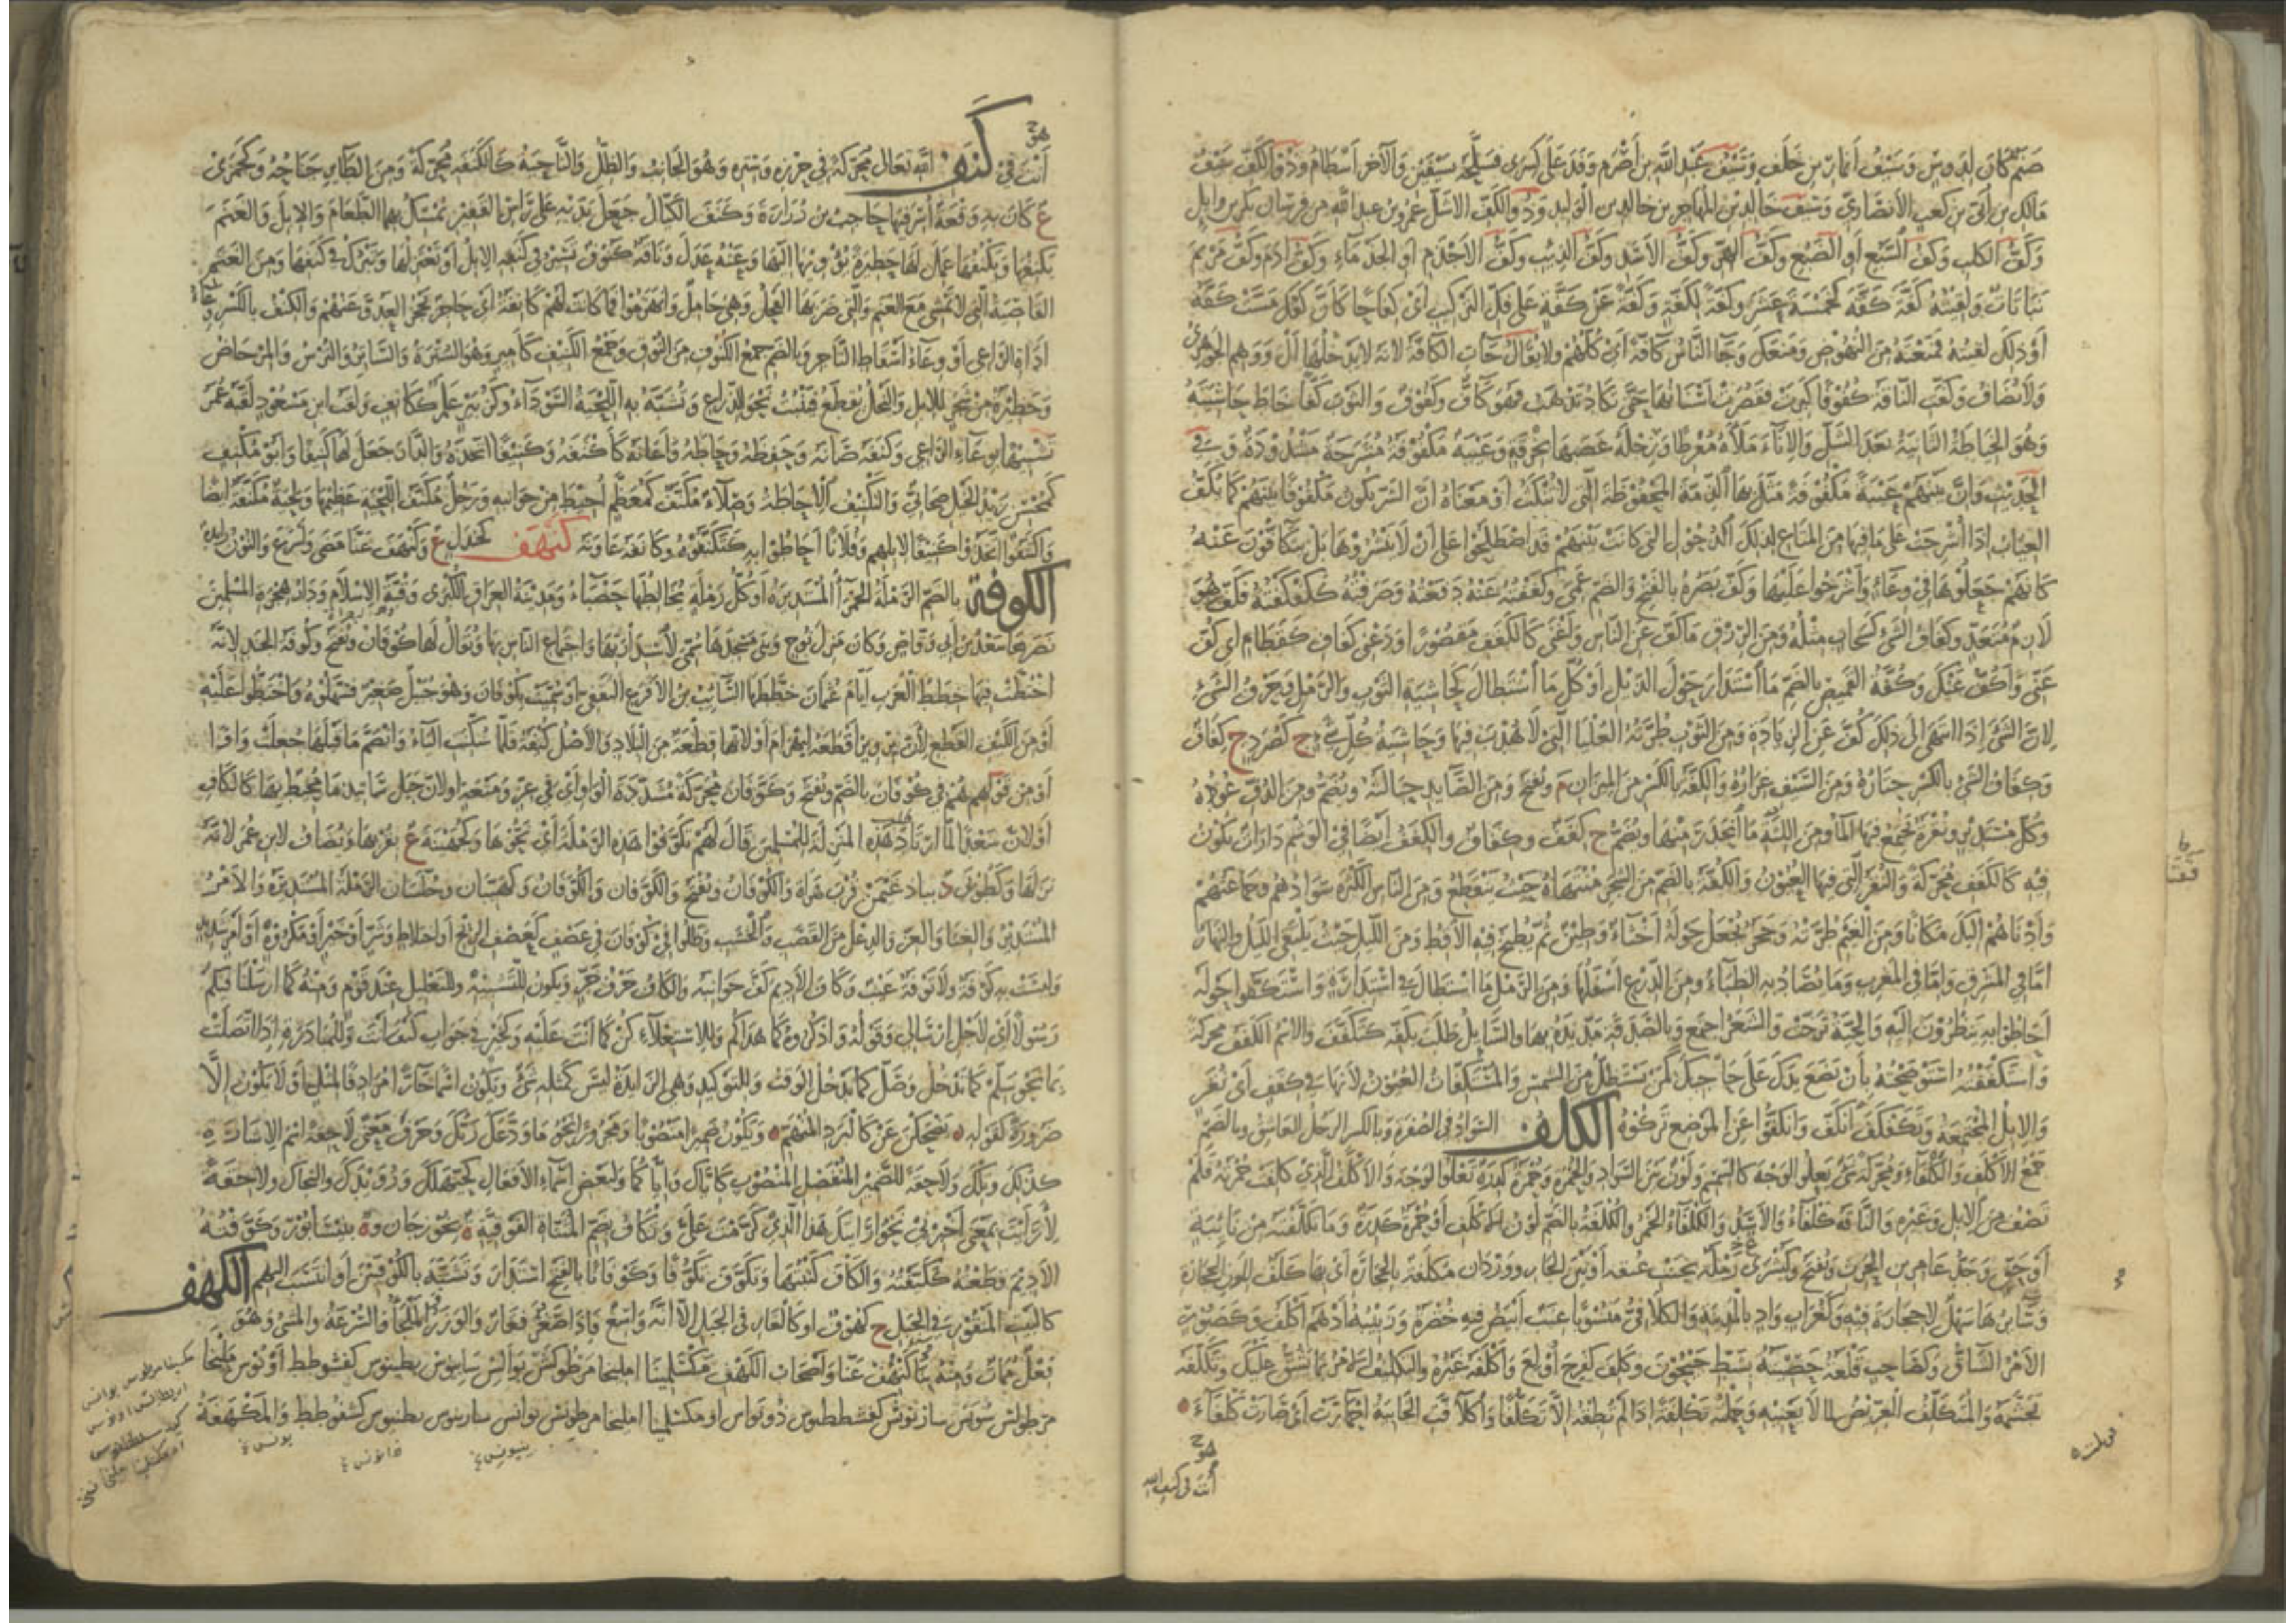 صنم كان لدوس وسيف أنمار بن خلف وسيف عبد الله بن أصرم وفد على كسرى فسلحه بسيفين والآخر أسطام وذو الكف سيف
مالك بن أبي بن كعب الأنصاري وسيف خالد بن المهاجر بن خالد بن الوليد وذو الكف الأشل عمرو بن عبد الله من فرسان بكر بن وائل
وكف الكلب وكف السبع أو الضبع وكف الهر وكف الأسد وكف الذئب وكف الأجذم أو الجذماء وكف آدم وكف مريم
نباتات ولقيته كفة كفة كخمسة عشر وكفة لكفة وكفة عن كفة على فك التركيب أي كفاحا كأن كفك مست كفه
أو ذلك لقيته فمنعته من النهوض ومنعك وجاء الناس كافة أي كلهم ولا يقال جاءت الكافة لأنه لا يدخلها أل ووهم الجوهري
ولا تضاف وكفت الناقة كفوفا كبرت فقصرت أسنانها حتى تكاد تذهب فهو كاف وكفوف والثوب كفا خاط حاشيته
وهو الخياطة الثانية بعد الشل والإناء ملأه مفرطا ورجله عصبها بخرقة وعيبة مكفوفة مشرجة مشدودة وفي
الحديث وإن بيننا وبينهم عيبة مكفوفة مثل بها الذمة المحفوظة التي لا تنكث أو معناه أن الشر يكون مكفوفا بينهم كما تكف
العياب إذا أشرجت على ما فيها من المتاع كذلك الذحول التي كانت بينهم قد اصطلحوا على أن لا ينشروها بل يتكافون عنه
كأنهم جعلوها في وعاء وأشرجوا عليها وكف بصره بالفتح والضم عمي وكففته عنه دفعته وصرفته ككفكفته فكف هو
لازم متعد وكفاف الشيء كسحاب مثله ومن الرزق ما كف عن الناس وأغنى كالكفف مقصورا ودعني كفاف كقطام أي كف
عني وأكف عنك وكفة القميص بالضم ما استدار حول الذيل أو كل ما استطال كحاشية الثوب والرمل وحرف الشيء
لأن الشيء إذا انتهى إلى ذلك كف عن الزيادة ومن الثوب طرته العليا التي لا هدب فيها وحاشية كل شيء ج كصرد ج كفاف
وكفاف الشيء بالكسر حتاره ومن السيف غراره والكفة بالكسر من الميزان م وتفتح ومن الصائد حبالته وتضم ومن الدف عوده
وكل مستدير ونقرة يجتمع فيها الماء ومن اللثة ما انحدر منها وتضم ج كفف وكفاف والكفف أيضا في الوشم دارات تكون
فيه كالكفف محركة والنقر التي فيها العيون والكفة بالضم من الشجر منتهاه حيث ينقطع ومن الناس الكثرة سوادهم وجماعتهم
وأدناهم إليك مكانا ومن الغيم طرته وحجر يجعل حوله أخثاء وطين ثم يطبخ فيه الأقط ومن الليل حيث يلتقي الليل والنهار
إما في المشرق وإما في المغرب وما تصاد به الظباء ومن الدرع أسفلها ومن الرمل ما استطال في استدارة واستكفوا حوله
أحاطوا به ينظرون إليه والحية ترحت والشعر اجتمع وبالصدقة مد يده بها والسائل طلب بكفه كتكفف والاسم الكفف محركة
واستكففته استوضحته بأن تضع يدك على حاجبك كمن يستظل من الشمس والمستكفات العيون لأنها في كفف أي نقر
والإبل المجتمعة وتكفكف انكف وانكفوا عن الموضع تركوه الكلف السواد في الصفرة وبالكسر الرجل العاشق وبالضم
جمع الأكلف والكلفاء ومحركة شيء يعلو الوجه كالسمسم ولون بين السواد والحمرة وحمرة كدرة تعلو الوجه والأكلف الذي كلفت حمرته فلم
تصف من الإبل وغيره والناقة كلفاء والأسد والكلفاء الخمر والكلفة بالضم لون الأكلف أو حمرة كدرة وما تكلفته من نائبة
أو حق وجد عامر بن الحرث وتفتح وكبشرى رملة بجنب غيقة أو بين الجار وودان مكلفة بالحجارة أي بها كلف للون الحجارة
وسائرها سهل لا حجارة فيه وكغراب واد بالمدينة والكلافي منسوبا عنب أبيض فيه خضرة وزبيبه أدهم أكلف وكصبور
الأمر الشاق وكصاحب قلعة حصينة بشط جيحون وكلف كفرح أولع وأكلفه غيره والتكليف الأمر بما يشق عليك وتكلفه
تجشمه والمتكلف العريض لما لا يعنيه وحملته تكلفة إذا لم تطقه إلا تكلفا واكلافت الخابية احمارت أي صارت كلفاء
هو
أنت في كنف الله
هو
أنت في كنف الله تعالى محركة في حرزه وستره وهو الجانب والظل والناحية كالكنفة محركة ومن الطائر جناحه وكجمزى
ع كان به وقعة أسر فيها حاجب بن زرارة وكنف الكيال جعل يديه على رأس القفيز يمسك بهما الطعام والإبل والغنم
يكنفها ويكنفها عمل لها حظيرة يؤويها إليها وعنه عدل وناقة كنوف تسير في كنفة الإبل أو تعتزلها وتبرك في كنفها ومن الغنم
القاصية التي لا تمشي مع الغنم والتي ضربها الفحل وهي حامل وانهزموا فما كانت لهم كانفة أي حاجز يحجز العدو عنهم والكنف بالكسر وعاء
أداة الراعي أو وعاء أسقاط التاجر وبالضم جمع الكنوف من النوق وجمع الكنيف كأمير وهو السترة والساتر والترس والمرحاض
وحظيرة من شجر للإبل والنخل يقطع فينبت نحو الذراع وتشبه به اللحية السوداء وكزبير علم ككانف ولقب ابن مسعود لقبه عمر
تشبيها بوعاء الراعي وكنفه صانه وحفظه وحاطه وأعانه كأكنفه وكنيفا اتخذه والدار جعل لها كنيفا وأبو مكنف
كمحسن زيد الخيل صحابي والتكنيف الإحاطة وصلاء مكنف كمعظم أحيط من جوانبه ورجل مكنف اللحية عظيمها ولحية مكنفة أيضا
واكتنفوا اتخذوا كنيفا لإبلهم وفلانا أحاطوا به كتكنفوه وكانفه عاونه كنهف كجندل ع وكنهف عنا مضى وأسرع والنون زائدة
الكوفة بالضم الرملة الحمراء المستديرة أو كل رملة تخالطها حصباء ومدينة العراق الكبرى وقبة الإسلام ودار هجرة المسلمين
مصرها سعد بن أبي وقاص وكان منزل نوح وبنى مسجدها سمي لاستدارتها واجتماع الناس بها ويقال لها كوفان ويفتح وكوفة الجند لأنه
اختطت فيها خطط العرب أيام عثمان خططها السائب بن الأقرع الثقفي أو سميت بكوفان وهو جبل صغير فسهلوه واختطوا عليه
أو من الكيف القطع لأن برويز أقطعه لبهرام أو لأنها قطعة من البلاد والأصل كيفة فلما سكنت الياء وانضم ما قبلها جعلت واوا
أو من قولهم هم في كوفان بالضم ويفتح وكوفان محركة مشددة الواو أي في عز ومنعة أو لأن جبل ساتيدما محيط بها كالكاف
أو لأن سعدا لما ارتاد هذه المنزلة للمسلمين قال لهم تكوفوا هذه الرملة أي نحوها وكجهينة ع بقربها ويضاف لابن عمر لأنه
نزلها وكطوبى د بباد غيس قرب هراة والكوفان ويفتح والكوفان والكوفان وكهيبان وجلسان الرملة المستديرة والأمر
المستدير والعناء والعز والدغل من القصب والخشب وظلوا في كوفان في عصف كعصف الريح أو اختلاط وشر أو خير أو مكروه أو أمر شديد
وليست به كوفة ولا توفة عيب وكاف الأديم كف جوانبه والكاف حرف جر ويكون للتشبيه وللتعليل عند قوم ومنه كما أرسلنا فيكم
رسولا أي لأجل إرسالي وقوله واذكروه كما هداكم وللاستعلاء كن كما أنت عليه وكخير في جواب كيف أنت وللمبادرة إذا اتصلت
بما نحو سلم كما تدخل وصل كما يدخل الوقت وللتوكيد وهي الزائدة ليس كمثله شيء وتكون اسما جارا مرادفا لمثل أو لا تكون إلا
ضرورة كقوله يضحكن عن كالبرد المنهم وتكون ضميرا منصوبا ومجرورا نحو ما ودعك ربك وحرف معنى لاحقة اسم الإشارة
كذلك وتلك ولاحقة للضمير المنفصل المنصوب كإياك وإياكما ولبعض أسماء الأفعال كحيهلك ورويدك والنجاك ولاحقة
لأرأيت بمعنى أخبرني نحو أرأيتك هذا الذي كرمت علي وتكاف بضم المثناة الفوقية ة بجوزجان وة بنيسابور وكوفته
الأديم قطعته ككيفته والكاف كتبتها وتكوف تكوفا وكوفانا بالفتح استدار وتشبه بالكوفيين أو انتسب إليهم الكهف
كالبيت المنقور في الجبل ج كهوف أو كالغار في الجبل إلا أنه واسع فإذا صغر فغار والوزر والملجأ والسرعة والمشي وهو
فعل ممات ومنه بناء كنهف عنا وأصحاب الكهف مكسلمينا امليخا مرطوكش نوالس سانيوس بطنيوس كشفوطط أو نوس مليخا
مرطولس سونس سازنوش كفشططيوس ذونواس أو مكسلمينا امليخا مرطونس نوانس سارينوس بطنيوس كشفوطط والمكهفة